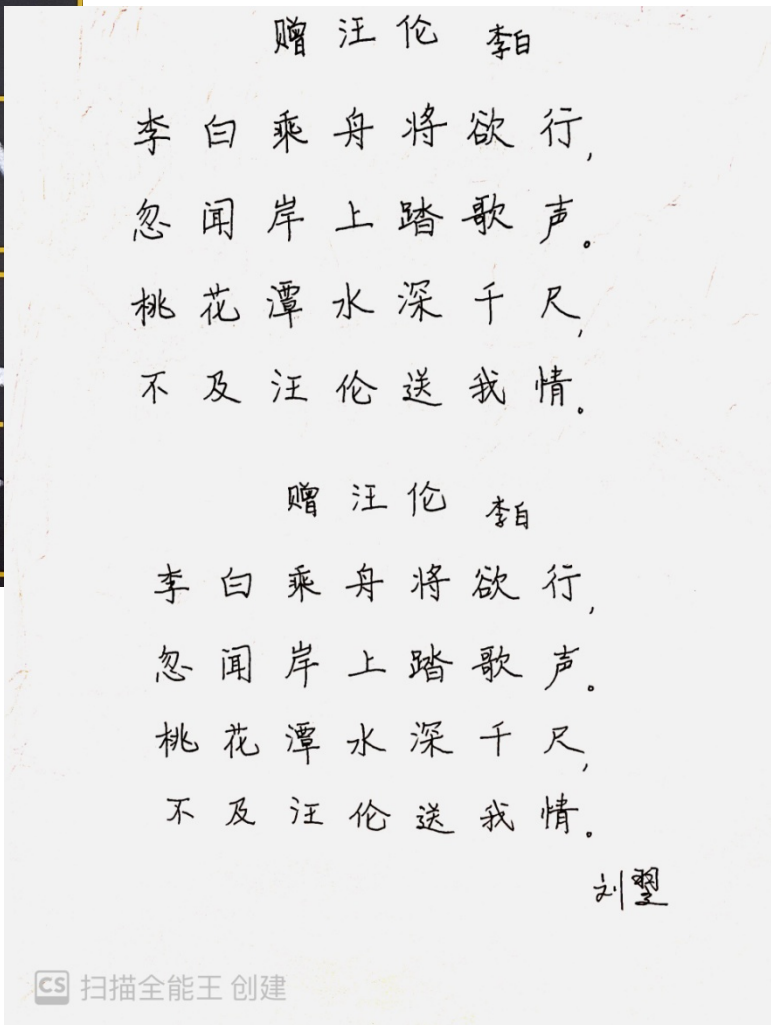 赠汪伦 李白
李白乘舟将欲行,
忽闻岸上踏歌声。
桃花潭水深千尺,
不及汪伦送我情。
赠汪伦 李白
李白乘舟将欲行,
忽闻岸上踏歌声。
桃花潭水深千尺,
不及汪伦送我情。
刘翌
CS 扫描全能王 创建